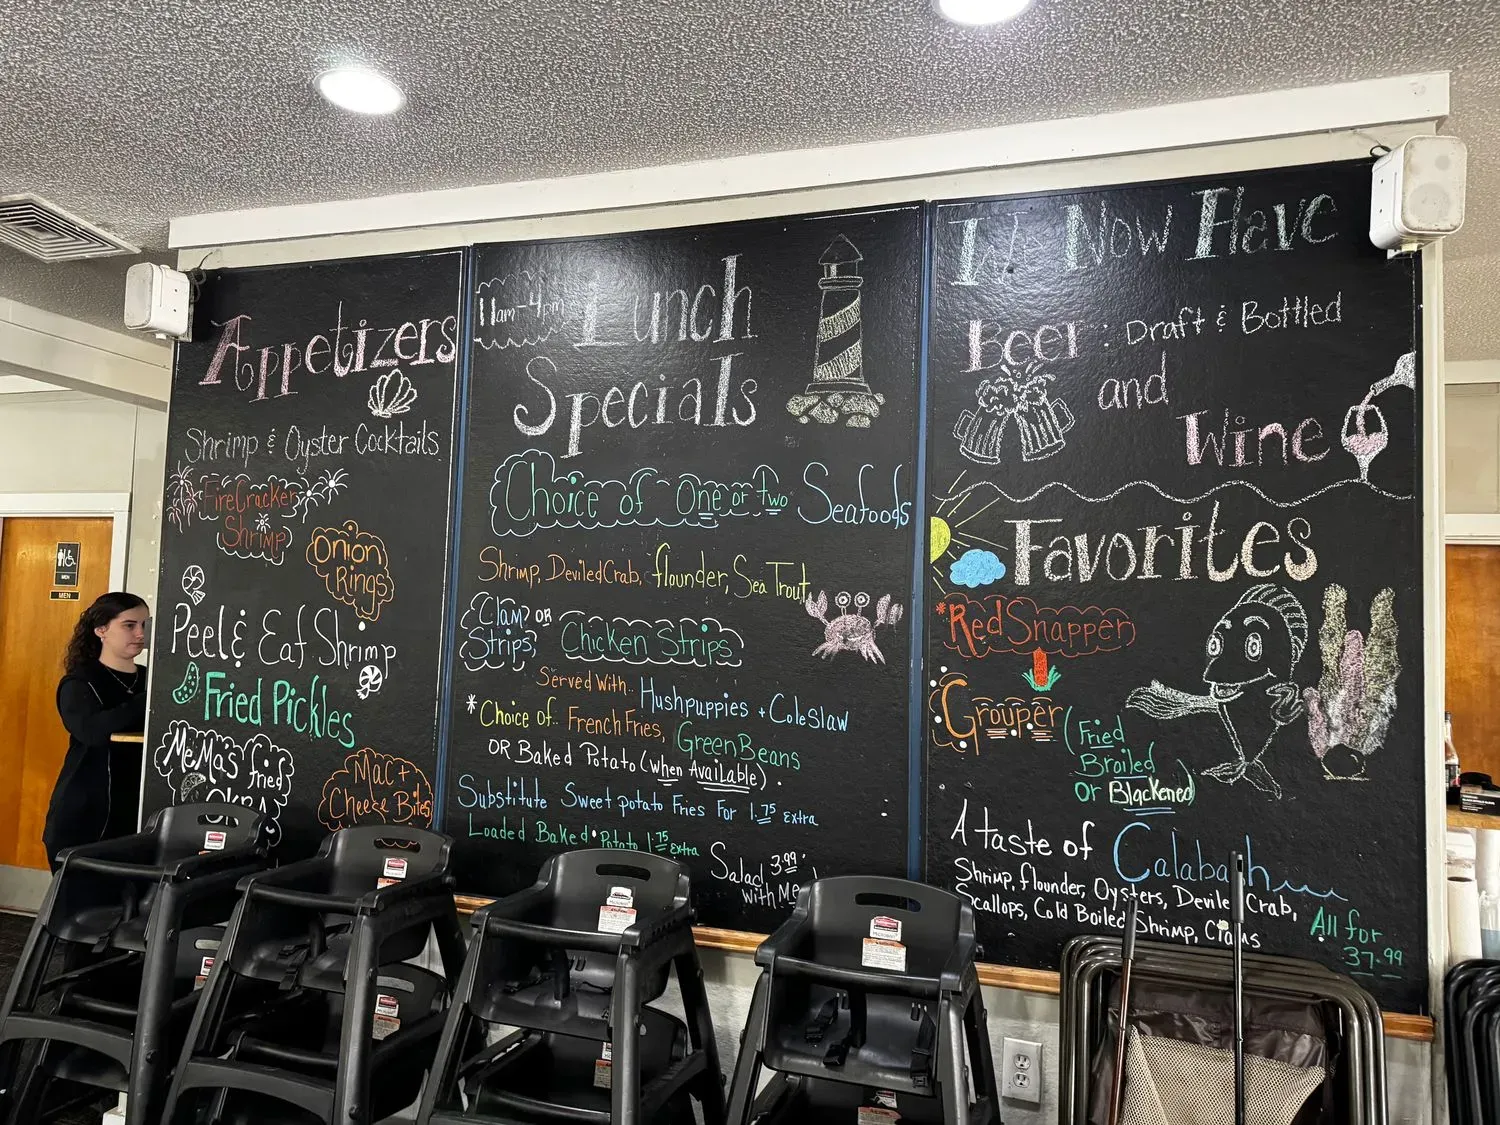 Appetizers
Shrimp & Oyster Cocktails
FireCracker
Shrimp
Onion
Rings
Peel & Eat Shrimp
Fried Pickles
MeMa's fried
OKRA
Mac +
Cheese Bites
11am-4pm Lunch
Specials
Choice of One or two Seafoods
Shrimp, Deviled Crab, flounder, Sea Trout,
Clam OR
Strips, Chicken Strips
Served With.. Hushpuppies + Coleslaw
*Choice of.. French Fries, Green Beans
OR Baked Potato (when Available)
Substitute Sweet potato Fries For 1.75 extra
Loaded Baked Potato 1.75 extra
Salad 3.99
with Me
We Now Have
Beer: Draft & Bottled
and
Wine
Favorites
*Red Snapper
Grouper (Fried
Broiled
or Blackened)
A taste of Calabash
Shrimp, flounder, Oysters, Deviled Crab,
Scallops, Cold Boiled Shrimp, Clams
All for
37.99
MEN
MEN